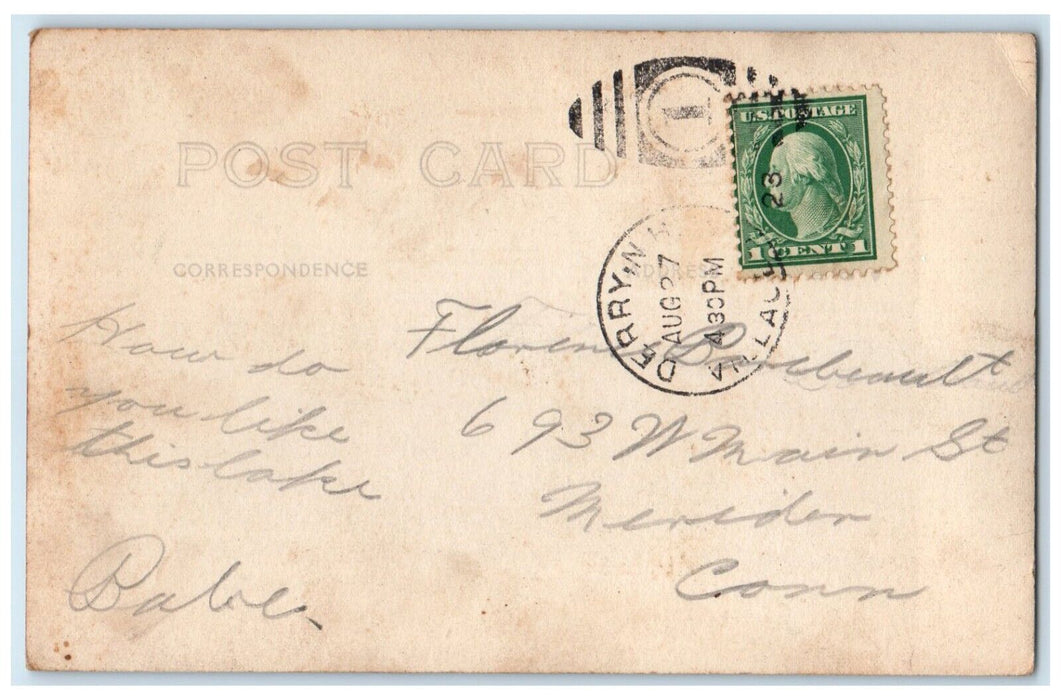 1
U.S. POSTAGE
POST CARD
23
1 CENT 1
DERRY, N.
AUG 27
4 30PM
VILLAGE
CORRESPONDENCE
ADDRESS
How do
you like
this lake
Babe.
693 W Main St
Meriden
Conn